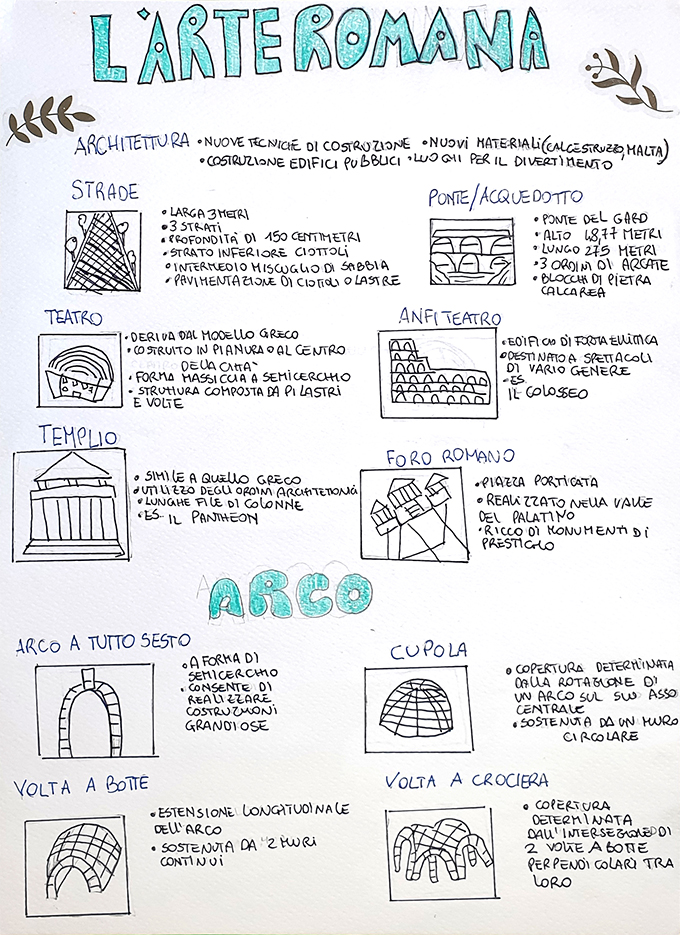 L'ARTE ROMANA
ARCHITETTURA • NUOVE TECNICHE DI COSTRUZIONE • NUOVI MATERIALI (CALCESTRUZZO, MALTA)
• COSTRUZIONE EDIFICI PUBBLICI • LUOGHI PER IL DIVERTIMENTO
STRADE
• LARGA 3 METRI
• 3 STRATI
• PROFONDITÀ DI 150 CENTIMETRI
• STRATO INFERIORE CIOTTOLI
• INTERMEDIO MISCUGLIO DI SABBIA
• PAVIMENTAZIONE DI CIOTOLI O LASTRE
PONTE/ACQUEDOTTO
• PONTE DEL GARD
• ALTO 48,77 METRI
• LUNGO 275 METRI
• 3 ORDINI DI ARCATE
• BLOCCHI DI PIETRA
CALCAREA
TEATRO
• DERIVA DAL MODELLO GRECO
• COSTRUITO IN PIANURA O AL CENTRO
DELLA CITTÀ
• FORMA MASSICCIA A SEMICERCHIO
• STRUTTURA COMPOSTA DA PILASTRI
E VOLTE
ANFITEATRO
• EDIFICIO DI FORMA ELLITTICA
• DESTINATO A SPETTACOLI
DI VARIO GENERE
• ES.
IL COLOSSEO
TEMPLIO
• SIMILE A QUELLO GRECO
• UTILIZZO DEGLI ORDINI
• LUNGHE FILE DI COLONNE
• ES. IL PANTHEON
FORO ROMANO
• PIAZZA PORTICATA
• REALIZZATO NELLA VALLE
DEL PALATINO
• RICCO DI MONUMENTI DI
PRESTIGIO
ARCO
ARCO A TUTTO SESTO
• A FORMA DI
SEMICERCHIO
• CONSENTE DI
REALIZZARE
COSTRUZIONI
GRANDIOSE
CUPOLA
• COPERTURA DETERMINATA
DALLA ROTAZIONE DI
UN ARCO SUL SUO ASSO
CENTRALE
• SOSTENUTA DA UN MURO
CIRCOLARE
VOLTA A BOTTE
• ESTENSIONE LONGITUDINALE
DELL'ARCO
• SOSTENUTA DA 2 MURI
CONTINUI
VOLTA A CROCIERA
• COPERTURA
DETERMINATA
DALL'INTERSEZIONE DI
2 VOLTE A BOTTE
PERPENDICOLARI TRA
LORO